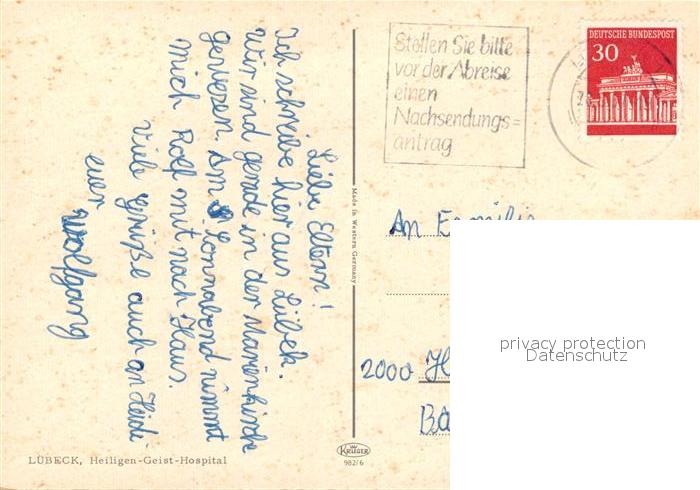 Liebe Eltern!
Ich schreibe hier aus Lübek.
Wir sind gerade in der Marienkirche
gewesen. Am Sonnabend nimmt
mich Rolf mit nach Haus.
Viele Grüße auch an Heidi
euer Wolfgang
LÜBECK, Heiligen-Geist-Hospital
Made in Western Germany
KRÜGER
982/6
Stellen Sie bitte
vor der Abreise
einen
Nachsendungs=
antrag
DEUTSCHE BUNDESPOST
30
An Familie
2000 H
Ba
privacy protection
Datenschutz